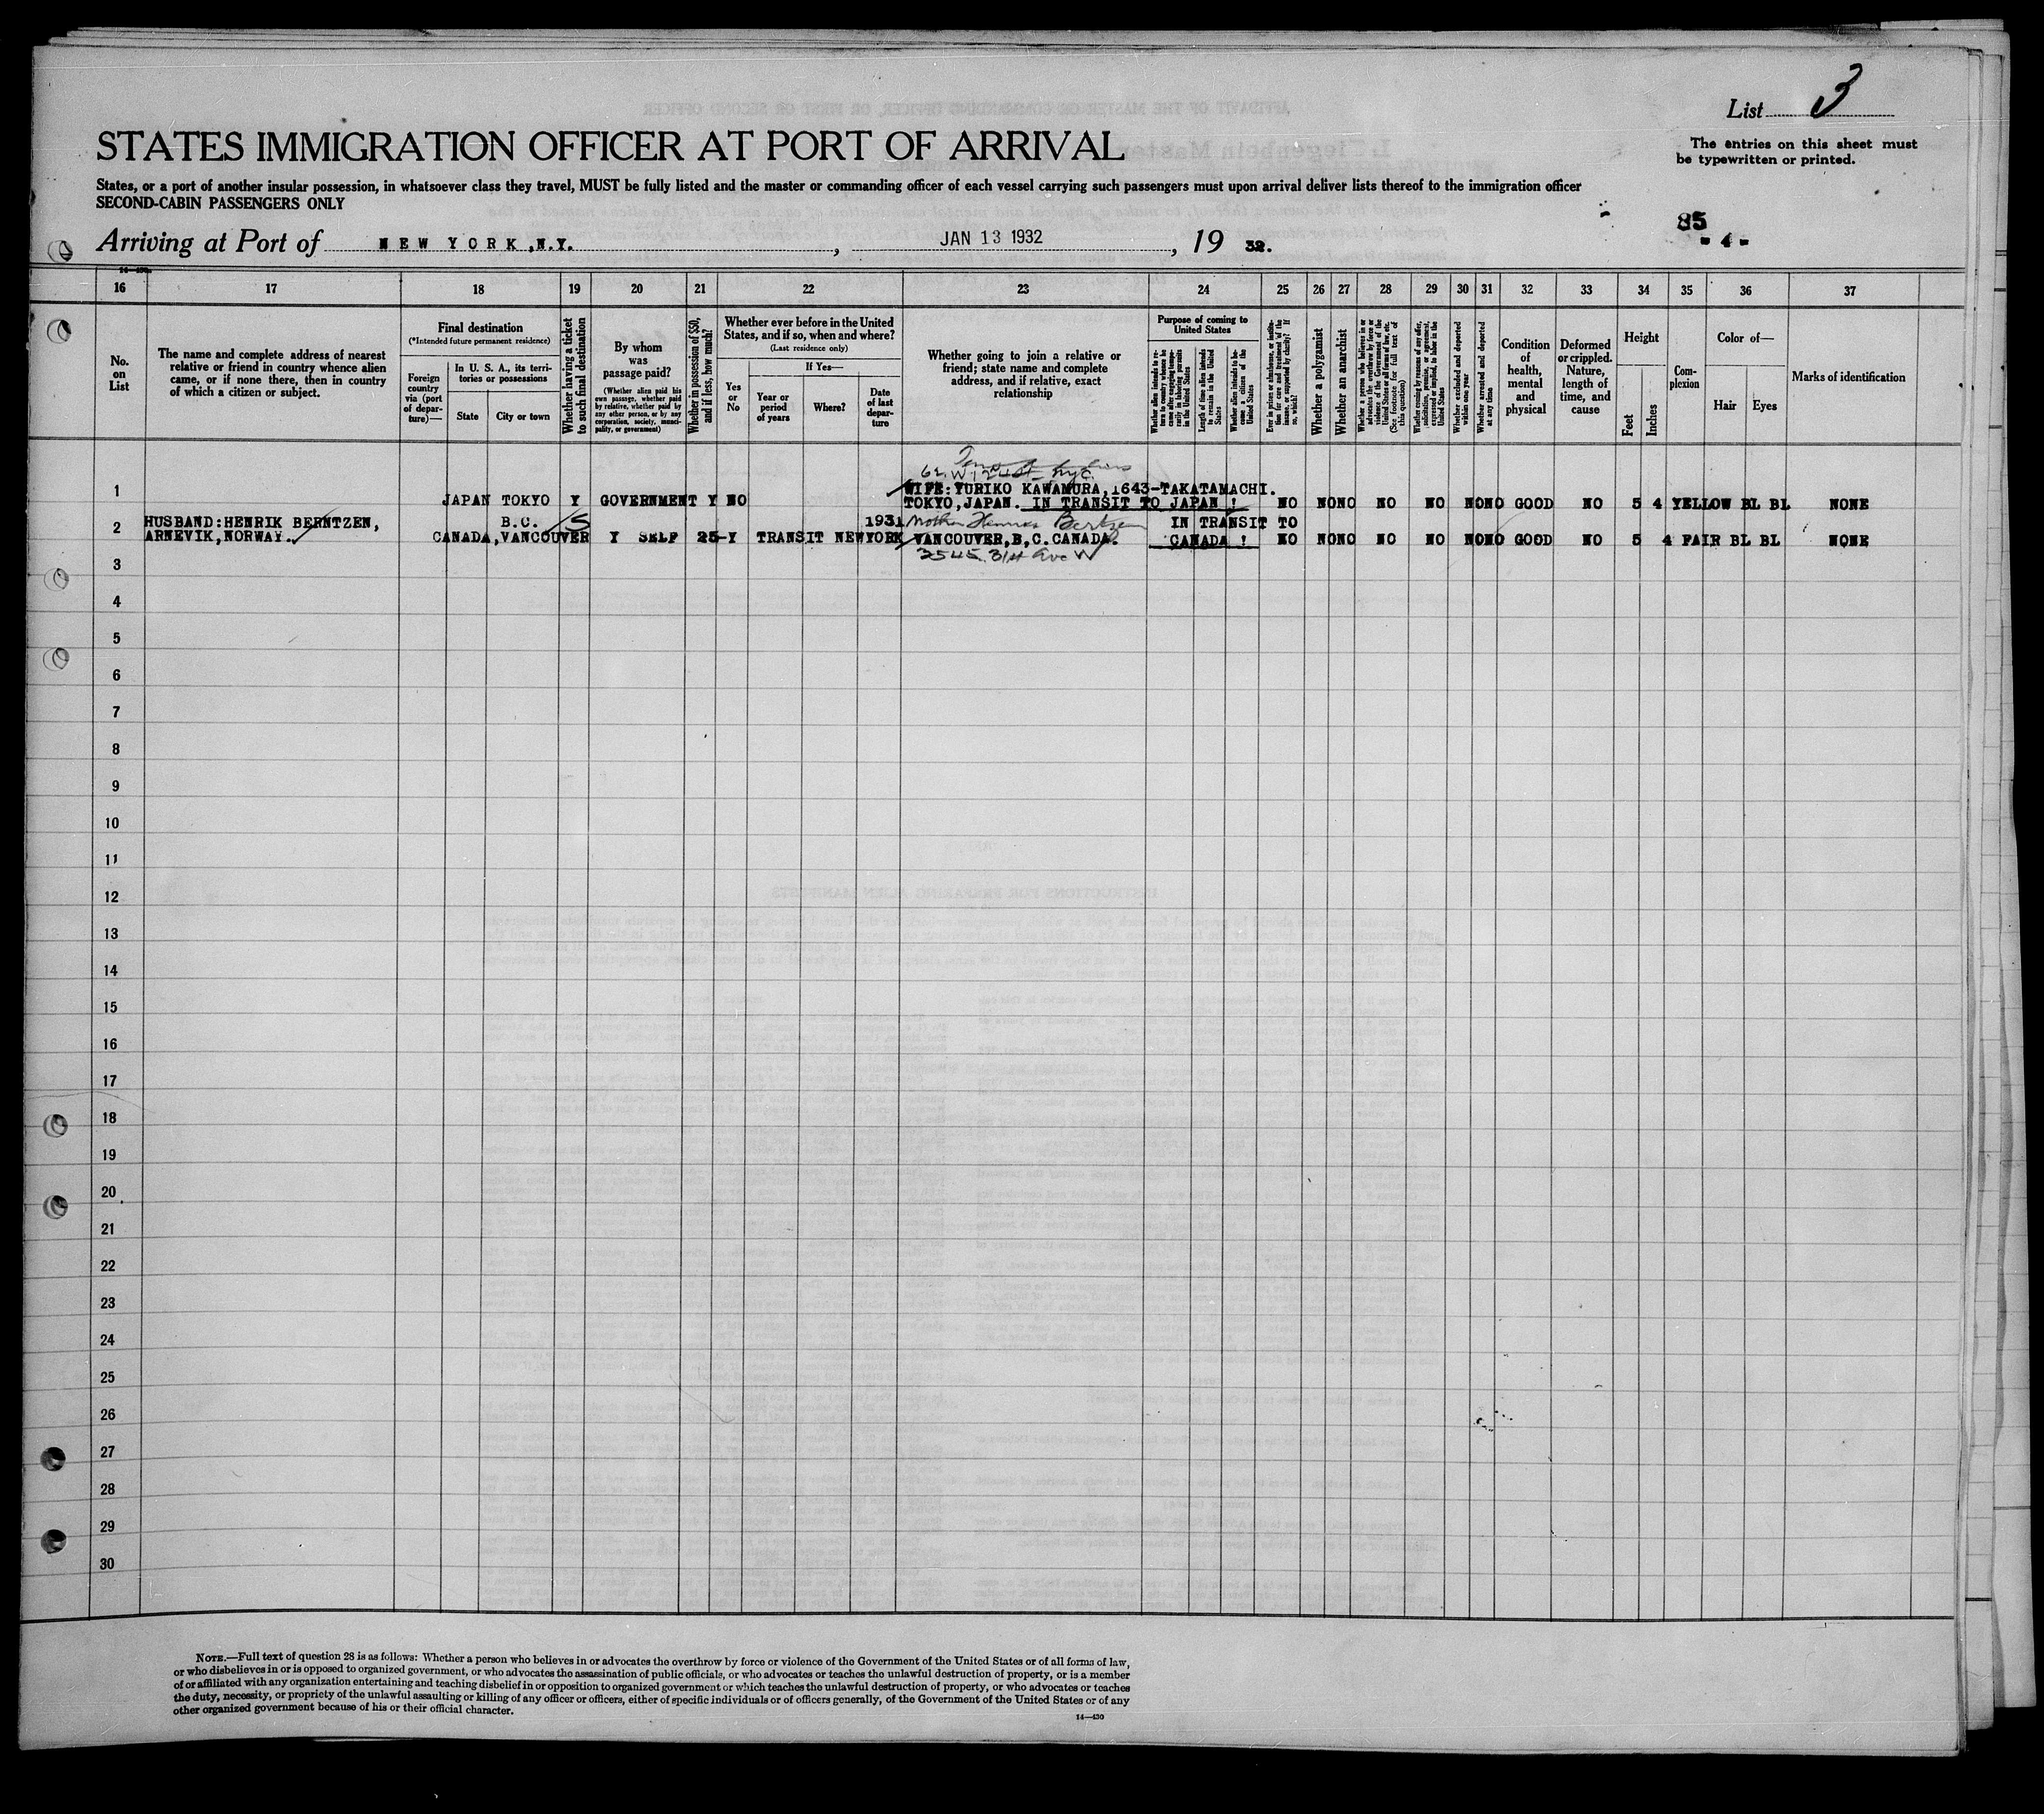 List 3
STATES IMMIGRATION OFFICER AT PORT OF ARRIVAL
The entries on this sheet must
be typewritten or printed.
States, or a port of another insular possession, in whatsoever class they travel, MUST be fully listed and the master or commanding officer of each vessel carrying such passengers must upon arrival deliver lists thereof to the immigration officer
SECOND-CABIN PASSENGERS ONLY
85
- 4 -
Arriving at Port of NEW YORK, N.Y., JAN 13 1932, 19 32.
16 17 18 19 20 21 22 23 24 25 26 27 28 29 30 31 32 33 34 35 36 37
No. on List
The name and complete address of nearest
relative or friend in country whence alien
came, or if none there, then in country
of which a citizen or subject.
Final destination
(*Intended future permanent residence)
Foreign country via (port of departure)—
In U. S. A., its territories or possessions
State
City or town
Whether having a ticket to such final destination
By whom was passage paid?
(Whether alien paid his own passage, whether paid by relative, whether paid by any other person, or by any corporation, society, municipality, or government)
Whether in possession of $50, and if less, how much?
Whether ever before in the United
States, and if so, when and where?
(Last residence only)
Yes or No
If Yes—
Year or period of years
Where?
Date of last departure
Whether going to join a relative or
friend; state name and complete
address, and if relative, exact
relationship
Purpose of coming to United States
Length of time alien intends to remain in the United States
Whether alien intends to become a citizen of the United States
Whether a polygamist
Whether an anarchist
(See footnote for full text of this question)
Whether excluded and deported within one year
Whether arrested and deported at any time
Condition of health, mental and physical
Deformed or crippled. Nature, length of time, and cause
Height
Feet
Inches
Complexion
Color of—
Hair
Eyes
Marks of identification
62 W 124 St NYC
1 JAPAN TOKYO Y GOVERNMENT Y NO WIFE: YURIKO KAWAMURA, 1643-TAKATAMACHI.
TOKYO, JAPAN. IN TRANSIT TO JAPAN ! NO NO NO NO NO NO NO GOOD NO 5 4 YELLOW BL BL NONE
2 HUSBAND: HENRIK BERNTZEN, B.C. 1931 Mother IN TRANSIT TO
ARNEVIK, NORWAY. CANADA, VANCOUVER Y SELF 25- Y TRANSIT NEWYORK VANCOUVER, B, C. CANADA. CANADA ! NO NO NO NO NO NO NO GOOD NO 5 4 FAIR BL BL NONE
3545. 31st Ave W
3
4
5
6
7
8
9
10
11
12
13
14
15
16
17
18
19
20
21
22
23
24
25
26
27
28
29
30
NOTE.—Full text of question 28 is as follows: Whether a person who believes in or advocates the overthrow by force or violence of the Government of the United States or of all forms of law,
or who disbelieves in or is opposed to organized government, or who advocates the assassination of public officials, or who advocates or teaches the unlawful destruction of property, or is a member
of or affiliated with any organization entertaining and teaching disbelief in or opposition to organized government or which teaches the unlawful destruction of property, or who advocates or teaches
the duty, necessity, or propriety of the unlawful assaulting or killing of any officer or officers, either of specific individuals or of officers generally, of the Government of the United States or of any
other organized government because of his or their official character.
14—430